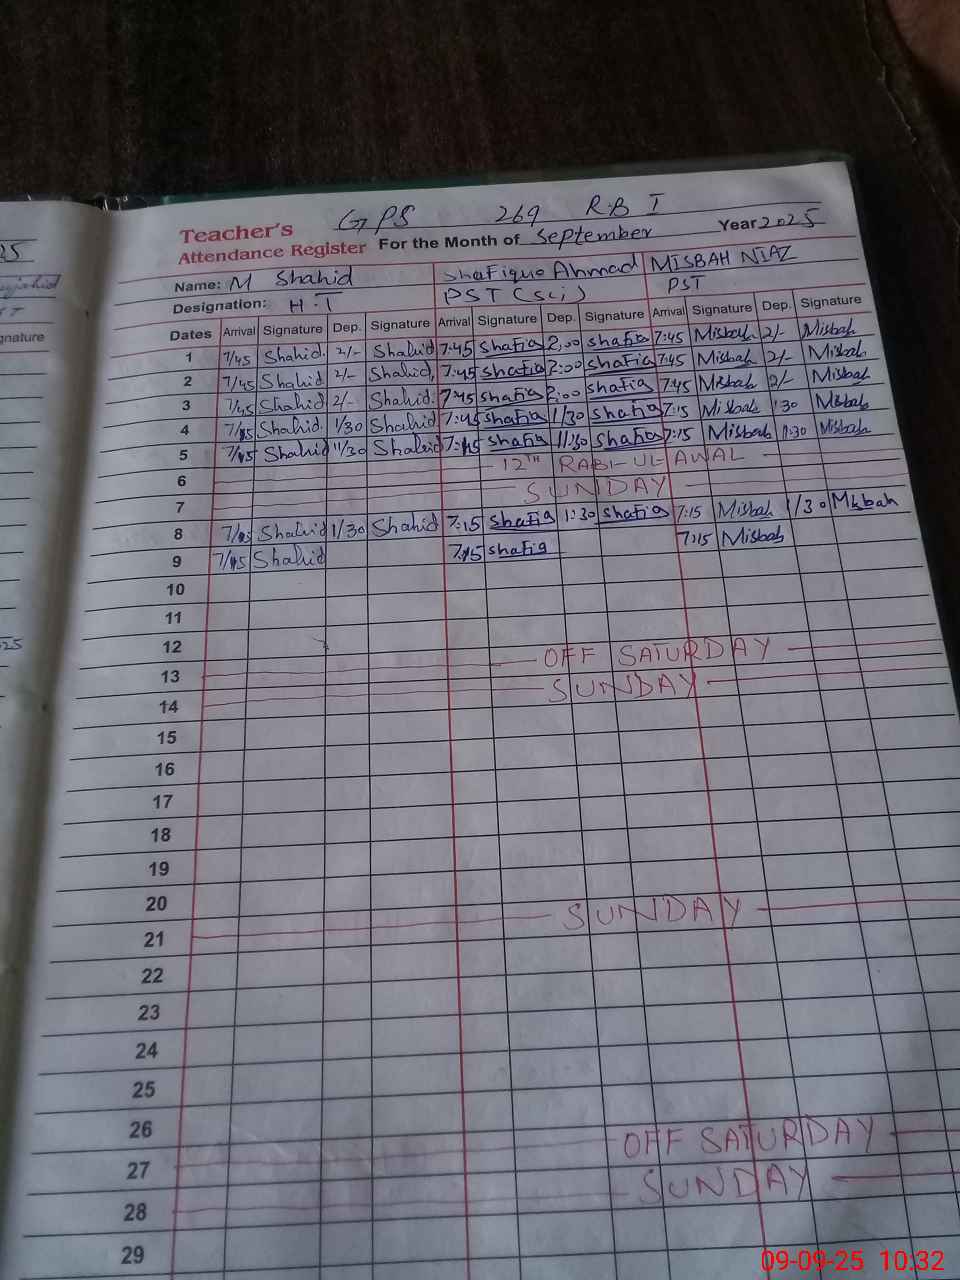 GPS 269 R.B I
Teacher's
Attendance Register For the Month of September Year 2025
Name: M Shahid Shafique Ahmad MISBAH NIAZ
Designation: H.T PST (Sci) PST
Dates Arrival Signature Dep. Signature Arrival Signature Dep. Signature Arrival Signature Dep. Signature
1 7/45 Shahid 2/- Shahid 7:45 Shafiq 2:00 Shafiq 7:45 Misbah 2/- Misbah
2 7/45 Shahid 2/- Shahid 7:45 Shafiq 2:00 Shafiq 7:45 Misbah 2/- Misbah
3 7/45 Shahid 2/- Shahid 7:45 Shafiq 2:00 Shafiq 7:45 Misbah 2/- Misbah
4 Shahid 1/30 Shahid Shafiq 1/30 Shafiq 7:15 Misbah 1:30 Misbah
5 Shahid Shahid Shafiq Shafiq 7:15 Misbah Misbah
6 12TH RABI-UL-AWAL
7 SUNDAY
8 Shahid 1/30 Shahid 7:15 Shafiq 1:30 Shafiq 7:15 Misbah 1/30 Misbah
9 Shahid 7:15 Shafiq 7:15 Misbah
10
11
12
13 OFF SATURDAY
14 SUNDAY
15
16
17
18
19
20
21 SUNDAY
22
23
24
25
26
27 OFF SATURDAY
28 SUNDAY
29
09-09-25 10:32